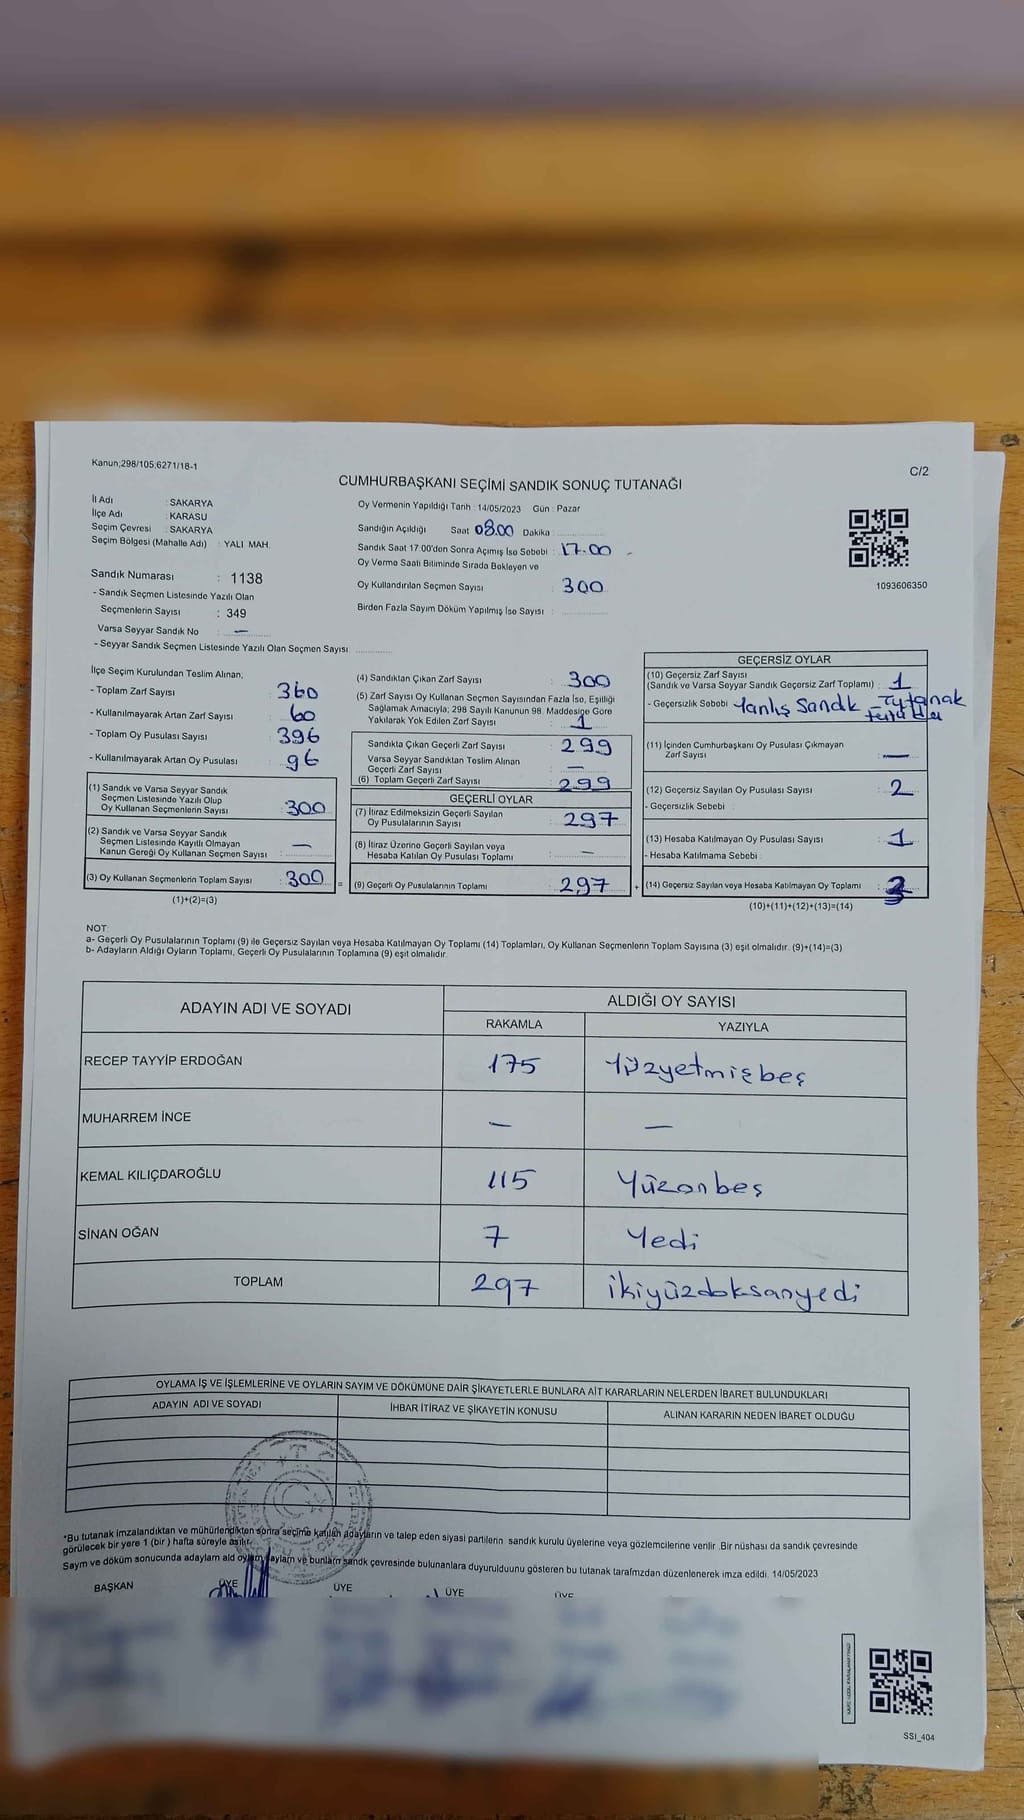 Kanun;298/105;6271/18-1
C/2
CUMHURBAŞKANI SEÇİMİ SANDIK SONUÇ TUTANAĞI
İl Adı : SAKARYA
İlçe Adı : KARASU
Seçim Çevresi : SAKARYA
Seçim Bölgesi (Mahalle Adı) : YALI MAH.
Sandık Numarası : 1138
- Sandık Seçmen Listesinde Yazılı Olan
Seçmenlerin Sayısı : 349
Varsa Seyyar Sandık No : —
- Seyyar Sandık Seçmen Listesinde Yazılı Olan Seçmen Sayısı
Oy Vermenin Yapıldığı Tarih : 14/05/2023 Gün : Pazar
Sandığın Açıldığı Saat 08.00 Dakika :
Sandık Saat 17.00'den Sonra Açımış İse Sebebi : 17.00
Oy Verme Saati Bitiminde Sırada Bekleyen ve
Oy Kullandırılan Seçmen Sayısı : 300
Birden Fazla Sayım Döküm Yapılmış İse Sayısı :
1093606350
İlçe Seçim Kurulundan Teslim Alınan;
- Toplam Zarf Sayısı : 360
- Kullanılmayarak Artan Zarf Sayısı : 60
- Toplam Oy Pusulası Sayısı : 396
- Kullanılmayarak Artan Oy Pusulası : 96
(1) Sandık ve Varsa Seyyar Sandık
Seçmen Listesinde Yazılı Olup
Oy Kullanan Seçmenlerin Sayısı : 300
(2) Sandık ve Varsa Seyyar Sandık
Seçmen Listesinde Kayıtlı Olmayan
Kanun Gereği Oy Kullanan Seçmen Sayısı : —
(3) Oy Kullanan Seçmenlerin Toplam Sayısı : 300
(1)+(2)=(3)
(4) Sandıktan Çıkan Zarf Sayısı : 300
(5) Zarf Sayısı Oy Kullanan Seçmen Sayısından Fazla İse, Eşitliği
Sağlamak Amacıyla; 298 Sayılı Kanunun 98. Maddesine Göre
Yakılarak Yok Edilen Zarf Sayısı : 1
Sandıkta Çıkan Geçerli Zarf Sayısı : 299
Varsa Seyyar Sandıktan Teslim Alınan
Geçerli Zarf Sayısı : —
(6) Toplam Geçerli Zarf Sayısı : 299
GEÇERLİ OYLAR
(7) İtiraz Edilmeksizin Geçerli Sayılan
Oy Pusulalarının Sayısı : 297
(8) İtiraz Üzerine Geçerli Sayılan veya
Hesaba Katılan Oy Pusulası Toplamı : —
= (9) Geçerli Oy Pusulalarının Toplamı : 297 +
GEÇERSİZ OYLAR
(10) Geçersiz Zarf Sayısı
(Sandık ve Varsa Seyyar Sandık Geçersiz Zarf Toplamı) : 1
- Geçersizlik Sebebi : Yanlış Sandık - Tutanak
tutuldu
(11) İçinden Cumhurbaşkanı Oy Pusulası Çıkmayan
Zarf Sayısı : —
(12) Geçersiz Sayılan Oy Pusulası Sayısı : 2
- Geçersizlik Sebebi :
(13) Hesaba Katılmayan Oy Pusulası Sayısı : 1
- Hesaba Katılmama Sebebi :
(14) Geçersiz Sayılan veya Hesaba Katılmayan Oy Toplamı : 3
(10)+(11)+(12)+(13)=(14)
NOT:
a- Geçerli Oy Pusulalarının Toplamı (9) ile Geçersiz Sayılan veya Hesaba Katılmayan Oy Toplamı (14) Toplamları, Oy Kullanan Seçmenlerin Toplam Sayısına (3) eşit olmalıdır. (9)+(14)=(3)
b- Adayların Aldığı Oyların Toplamı, Geçerli Oy Pusulalarının Toplamına (9) eşit olmalıdır.
ADAYIN ADI VE SOYADI ALDIĞI OY SAYISI
RAKAMLA YAZIYLA
RECEP TAYYİP ERDOĞAN 175 Yüzyetmişbeş
MUHARREM İNCE — —
KEMAL KILIÇDAROĞLU 115 Yüzonbeş
SİNAN OĞAN 7 Yedi
TOPLAM 297 ikiyüzdoksanyedi
OYLAMA İŞ VE İŞLEMLERİNE VE OYLARIN SAYIM VE DÖKÜMÜNE DAİR ŞİKAYETLERLE BUNLARA AİT KARARLARIN NELERDEN İBARET BULUNDUKLARI
ADAYIN ADI VE SOYADI İHBAR İTİRAZ VE ŞİKAYETİN KONUSU ALINAN KARARIN NEDEN İBARET OLDUĞU
*Bu tutanak imzalandıktan ve mühürlendikten sonra seçime katılan adayların ve talep eden siyasi partilerin sandık kurulu üyelerine veya gözlemcilerine verilir .Bir nüshası da sandık çevresinde
görülecek bir yere 1 (bir ) hafta süreyle asılır.
Sayım ve döküm sonucunda adayların ald oyların sayıları ve bunların sandık çevresinde bulunanlara duyurulduunu gösteren bu tutanak tarafımızdan düzenlenerek imza edildi. 14/05/2023
BAŞKAN ÜYE ÜYE ÜYE ÜYE
SSI_404